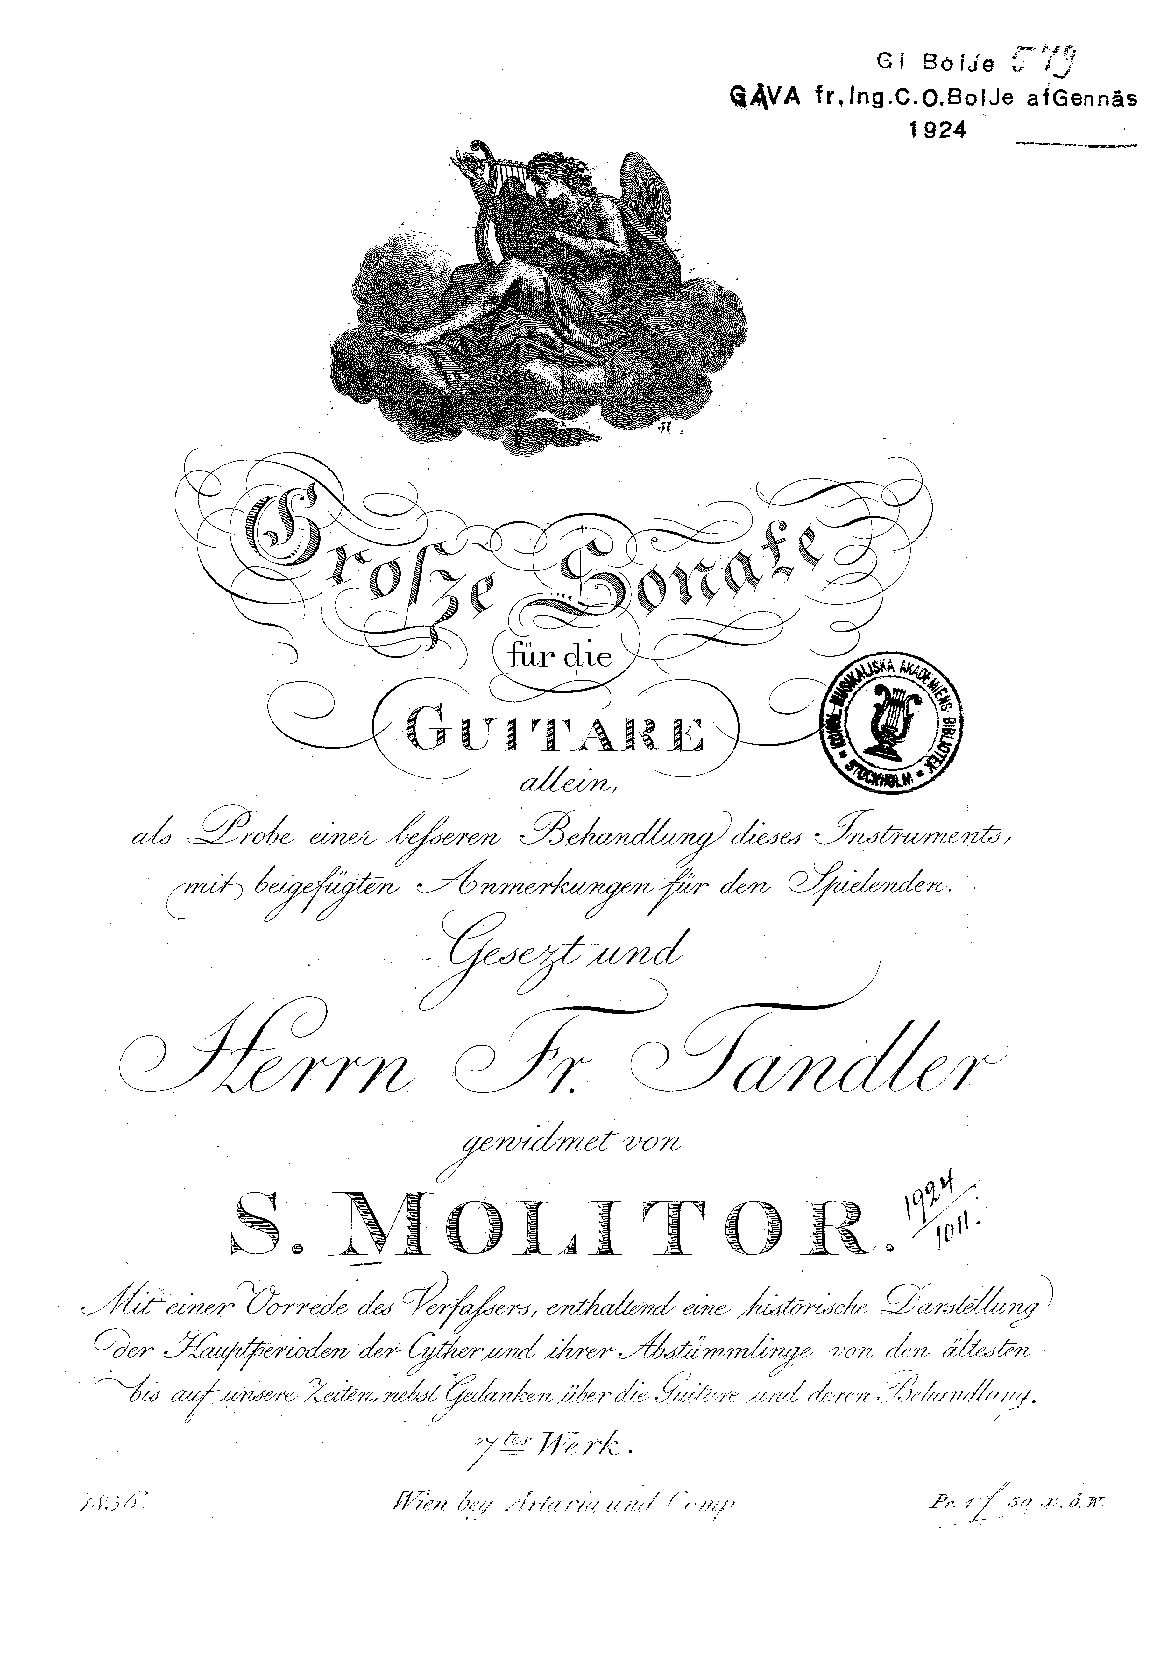 GI Boije 579
GÅVA fr, Ing. C.O. Boije af Gennäs
1924
Große Sonate
für die
GUITARE
KONGL. MUSIKALISKA AKADEMIENS BIBLIOTEK
STOCKHOLM
allein,
als Probe einer besseren Behandlung dieses Instruments,
mit beigefügten Anmerkungen für den Spielenden.
Gesezt und
Herrn Fr. Tandler
gewidmet von
S. MOLITOR.
1924/1011.
Mit einer Vorrede des Verfassers, enthaltend eine historische Darstellung
der Hauptperioden der Cyther, und ihrer Abstämmlinge von den ältesten
bis auf unsere Zeiten, nebst Gedanken über die Guitare und deren Behandlung.
7tes Werk.
1856. Wien bey Artaria und Comp.